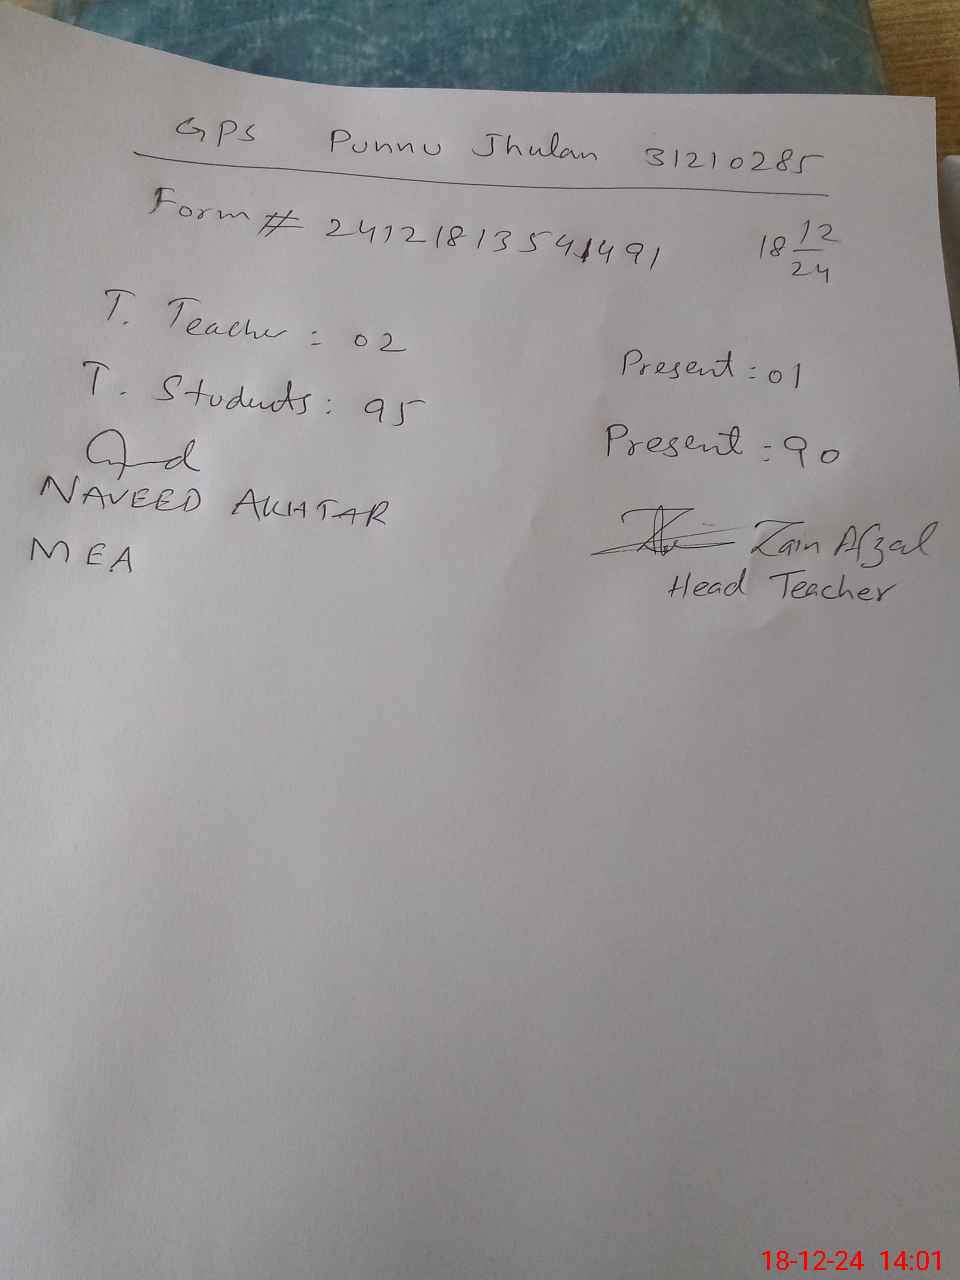 GPS Punnu Jhulan 31210285
Form # 24121813541491 18 12/24
T. Teacher : 02 Present : 01
T. Students : 95 Present : 90
NAVEED AKHTAR Zain Afzal
MEA Head Teacher
18-12-24 14:01